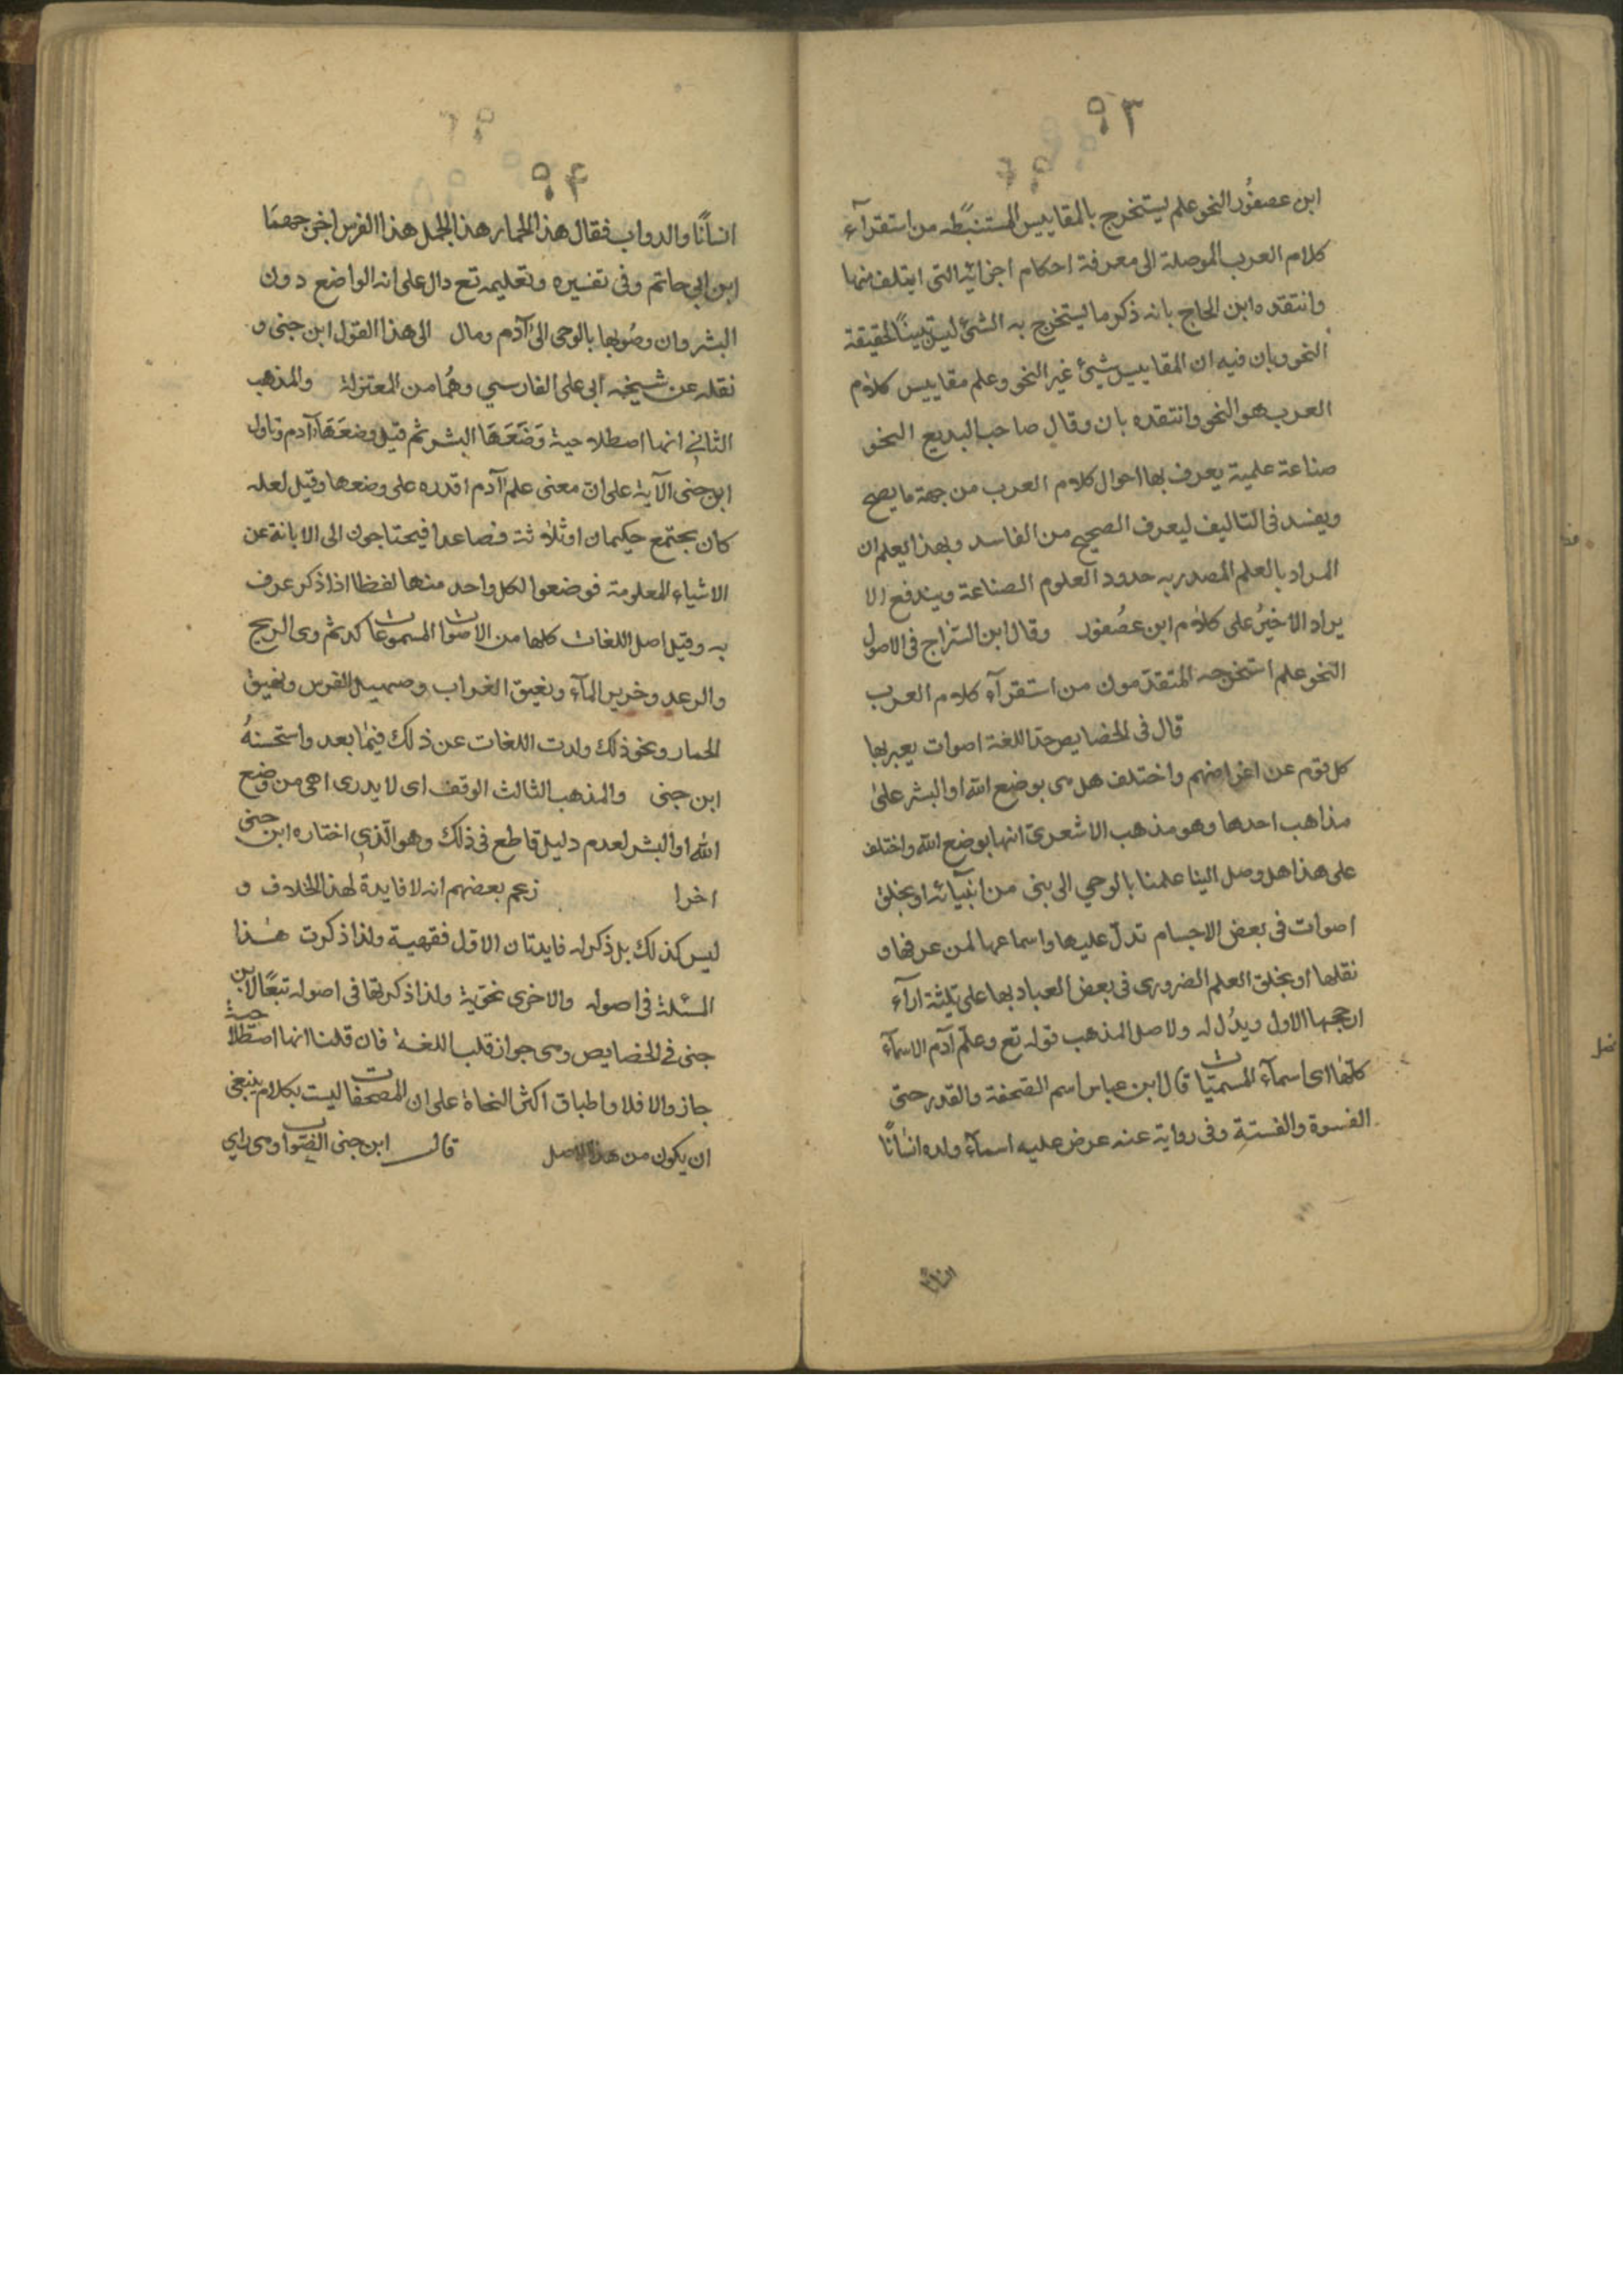 ٩٣
ابن عصفُور النحو علم يستخرج بالمقاييس المستنبطه من استقرآء
كلام العرب الموصلة الى معرفة احكام اجزائه التى ايتلف منها
وانتقده ابن الحاج بانه ذكر ما يستخرج به الشئ ليتبين حقيقة
النحو وبان فيه ان المقاييس شيئ غير النحو وعلم مقاييس كلام
العرب هو النحو وانتقده بان وقال صاحب البديع النحو
صناعة علمية يعرف بها احوال كلام العرب من جهة ما يصح
ويفسد فى التاليف ليعرف الصحيح من الفاسد وبهذا يعلم ان
المراد بالعلم المصدر به حدود العلوم الصناعة ويندفع الا
يراد الاخيرُ على كلام ابن عصُفور وقال ابن السّرّاج فى الاصول
النحو علم استخرجه المتقدّمون من استقرآء كلام العرب
قال فى الخصايص حدّ اللغة اصوات يعبر بها
كل قوم عن اغراضهم واختلف هل هى بوضع الله او البشر على
مذاهب احدها وهو مذهب الاشعرىّ انها بوضع الله واختلف
على هذا هل وصل الينا علمنا بالوحي الى نبى من انبيآئه او بخلق
اصوات فى بعض الاجسام تدلّ عليها واسماعها لمن عرفها و
نقلها او بخلق العلم الضرورى فى بعض العباد بها على ثلثة ارآء
ارجحها الاول ويدُل له ولاصل المذهب قوله تع وعلّم آدم الاسمآء
كلّها اى اسمآء المسميّات قال ابن عباس اسم الصحفة والقدر حتى
الفسوة والفسية وفى رواية عنه عرض عليه اسمآء ولده انسانًا
٩٤
انسانًا والدواب فقال هذا الحمار هذا الجمل هذا الفرس اخرجهمَا
ابن ابى حاتم وفى تفسيره وتعليمه تع دال على انه الواضع دون
البشر وان وصُولها بالوحى الى آدم ومال الى هذا القول ابن جنى و
نقله عن شيخه ابى على الفارسي وهُما من المعتزلة والمذهب
الثانى انها اصطلاحية وَضَعَهَا البشر ثم قيل وضعَهَا آدم وتاول
ابن جنى الآية على انّ معنى علم آدم اقدره على وضعها وقيل لعله
كان يجتمع حكيمان او ثلاثة فصاعدا فيحتاجون الى الابانة عن
الاشياء المعلومة فوضعوا لكل واحد منها لفظا اذا ذكر عرف
به وقيل اصل اللغات كلها من الاصوات المسموعات كدى الريح
والرعد وخرير المآء ونغيق الغراب وصهيل الفرس ونهيق
الحمار ونحو ذلك ولدت اللغات عن ذلك فيما بعد واستحسنهُ
ابن جنى والمذهب الثالث الوقف اى لا يدرى اهى من وضع
الله او البشر لعدم دليل قاطع فى ذلك وهو الّذى اختاره ابن جنى
اخرا زعم بعضهم انه لا فايدة لهذا الخلاف و
ليس كذلك بل ذكر له فايدتان الاول فقهية ولذا ذكرت هذا
المسئلة فى اصوله والاخرى نحويّة ولذا ذكرتها فى اصوله تبعًا لابن
جنى فى الخصايص وهى جواز قلب اللغة فان قلنا انها اصطلاحية
جاز والا فلا واطباق اكثر النحاة على ان المصحفات ليست بكلام ينبغى
ان يكون من هذا الاصل قال ابن جنى الصّواب وهى رايي